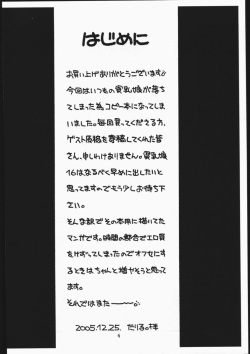 はじめに
お買い上げありがとうございます。
今回はいつもの貧乳娘が落ち
てしまった為コピー本になってしま
いました。毎回買ってくださる方、
ゲスト原稿を寄稿してくれた皆
さん、申しわけありません。貧乳娘
16はなるべく早めに出したいと
思ってますのでもう少しお待ち下
さい。
そんな訳でその本用に描いてた
マンガです。時間の都合でエロ質
をけずってしまったのでオフセにす
るときはちゃんと増ヤそうと思って
ます。
それではまたーーー。
2005.12.25.
4